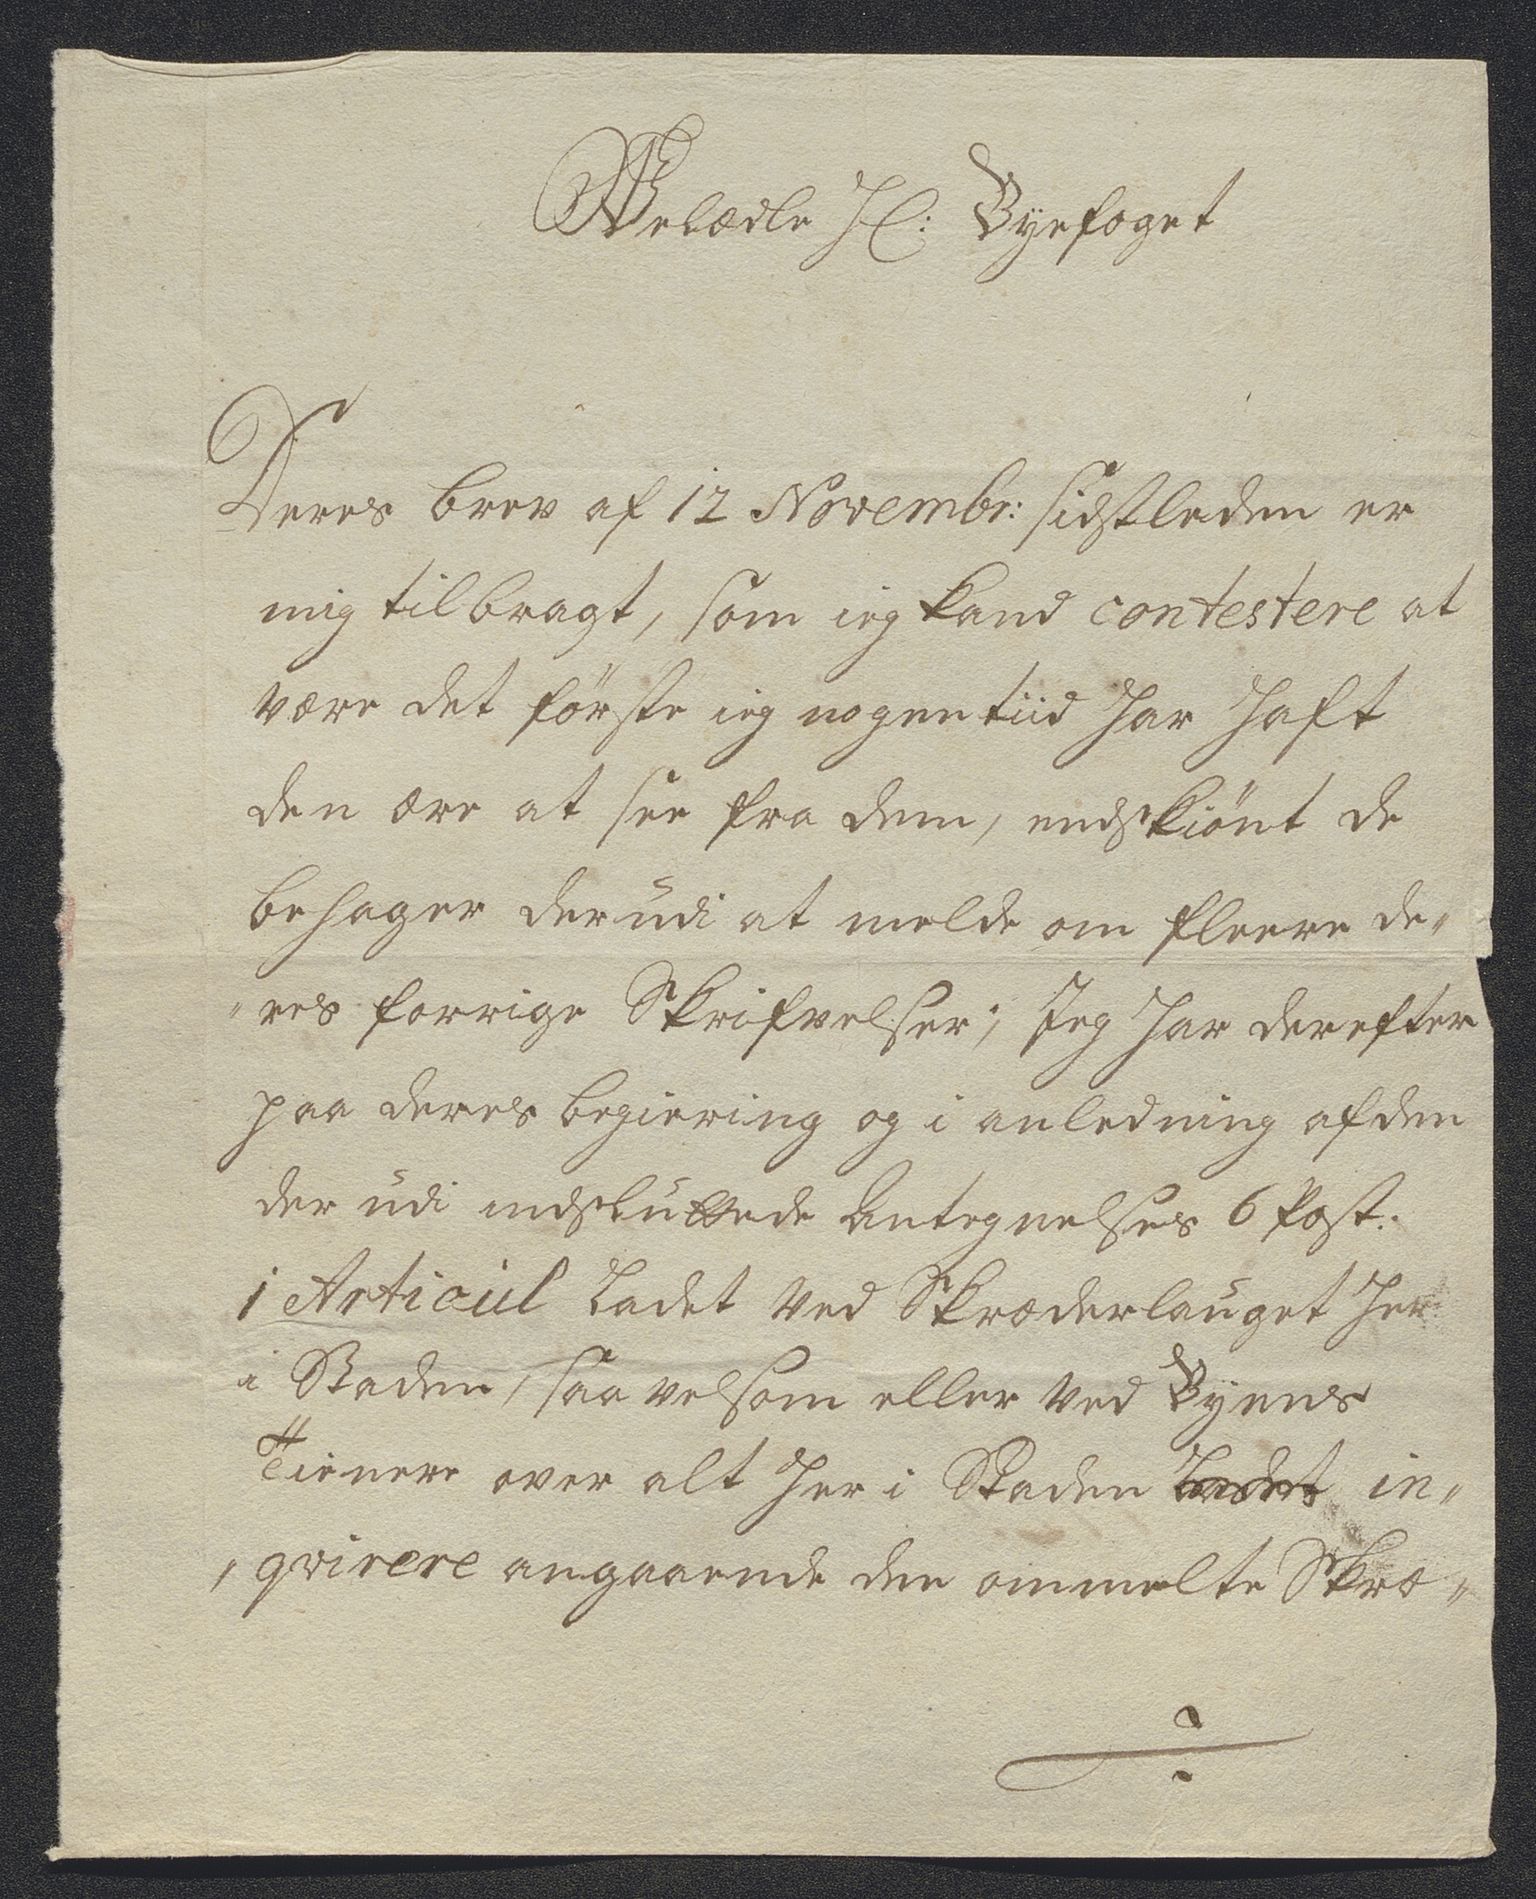 Welædle Hr: Byefoget
Deres brev af 12 Novembr: sidstleden er
mig tilbragt, som ieg kand contestere at
være det første ieg nogentiid har haft
den ære at see fra dem, endskiönt de
behager derudi at melde om fleere de„
„res forrige Skrifvelser; Jeg har derefter
paa deres begiering og i anledning afden
der udi indsluttede Antegnelses 6 Post.
1 Articul ladet ved Skræderlauget her
i Staden, saavelsom eller ved Byens
Tienere over alt her i Staden in„
„qvirere angaaende den ommelte Skræ„